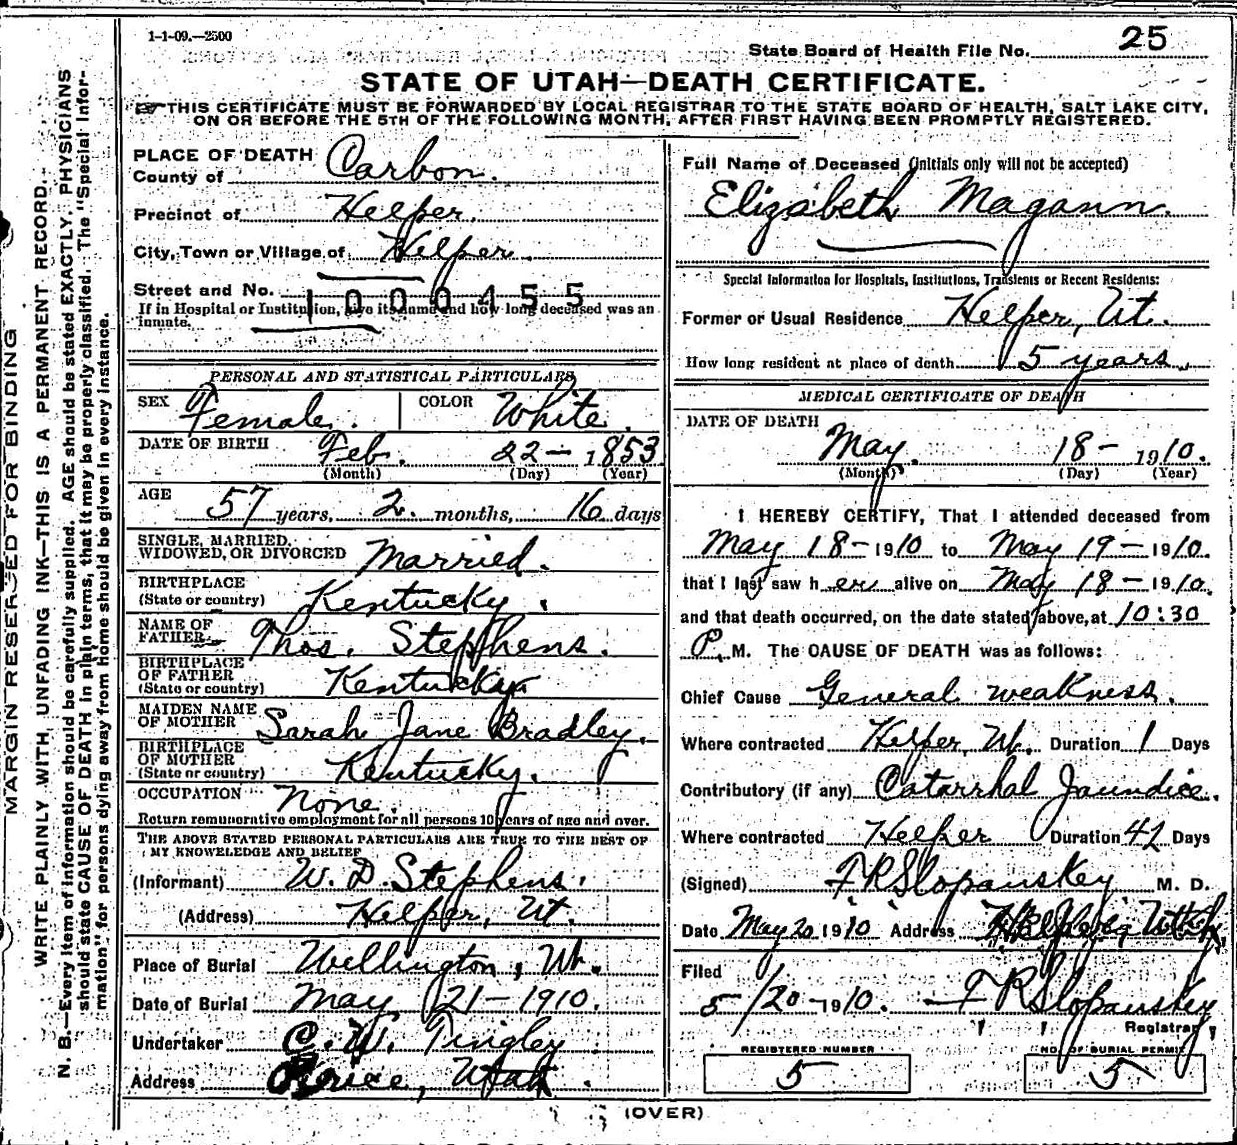 1-1-09.—2500
State Board of Health File No. 25
STATE OF UTAH—DEATH CERTIFICATE.
THIS CERTIFICATE MUST BE FORWARDED BY LOCAL REGISTRAR TO THE STATE BOARD OF HEALTH, SALT LAKE CITY,
ON OR BEFORE THE 5TH OF THE FOLLOWING MONTH, AFTER FIRST HAVING BEEN PROMPTLY REGISTERED.
MARGIN RESERVED FOR BINDING
WRITE PLAINLY WITH UNFADING INK—THIS IS A PERMANENT RECORD.
N. B.—Every item of information should be carefully supplied. AGE should be stated EXACTLY. PHYSICIANS
should state CAUSE OF DEATH in plain terms, that it may be properly classified. The "Special Infor-
mation" for persons dying away from home should be given in every instance.
PLACE OF DEATH
County of Carbon.
Precinct of Helper.
City, Town or Village of Helper.
Street and No.
1000455
If in Hospital or Institution, give its name and how long deceased was an
inmate.
PERSONAL AND STATISTICAL PARTICULARS
SEX Female. COLOR White.
DATE OF BIRTH Feb. 22 — 1853
(Month) (Day) (Year)
AGE 57 years, 2 months, 16 days
SINGLE, MARRIED,
WIDOWED, OR DIVORCED Married.
BIRTHPLACE
(State or country) Kentucky.
NAME OF
FATHER Thos. Stephens.
BIRTHPLACE
OF FATHER
(State or country) Kentucky
MAIDEN NAME
OF MOTHER Sarah Jane Bradley.
BIRTHPLACE
OF MOTHER
(State or country) Kentucky.
OCCUPATION None.
Return remunerative employment for all persons 10 years of age and over.
THE ABOVE STATED PERSONAL PARTICULARS ARE TRUE TO THE BEST OF
MY KNOWLEDGE AND BELIEF
(Informant) W. D. Stephens.
(Address) Helper, Ut.
Place of Burial Wellington, Ut.
Date of Burial May 21 — 1910.
Undertaker C. W. Tingley
Address Price, Utah.
Full Name of Deceased (initials only will not be accepted)
Elizabeth Magann.
Special Information for Hospitals, Institutions, Transients or Recent Residents:
Former or Usual Residence Helper, Ut.
How long resident at place of death 5 years.
MEDICAL CERTIFICATE OF DEATH
DATE OF DEATH
May. 18 — 1910.
(Month) (Day) (Year)
I HEREBY CERTIFY, That I attended deceased from
May 18 — 1910 to May 19 — 1910.
that I last saw h er alive on May 18 — 1910.
and that death occurred, on the date stated above, at 10:30
P. M. The CAUSE OF DEATH was as follows:
Chief Cause General weakness.
Where contracted Helper, Ut. Duration 1 Days
Contributory (if any) Catarrhal Jaundice.
Where contracted Helper Duration 42 Days
(Signed) F R Slopansky M. D.
Date May 20 1910 Address
Filed
5/20 — 1910. F R Slopansky
Registrar
REGISTERED NUMBER
5
NO. OF BURIAL PERMIT
5
(OVER)